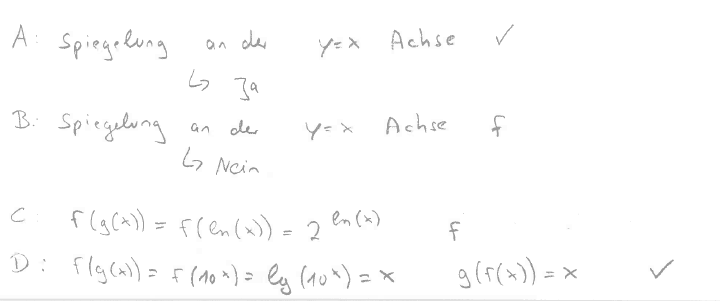 A: Spiegelung an der y=x Achse ✓
↳ Ja
B: Spiegelung an der y=x Achse f
↳ Nein
C f(g(x)) = f(ln(x)) = 2^ln(x) f
D: f(g(x)) = f(10^x) = lg(10^x) = x g(f(x)) = x ✓